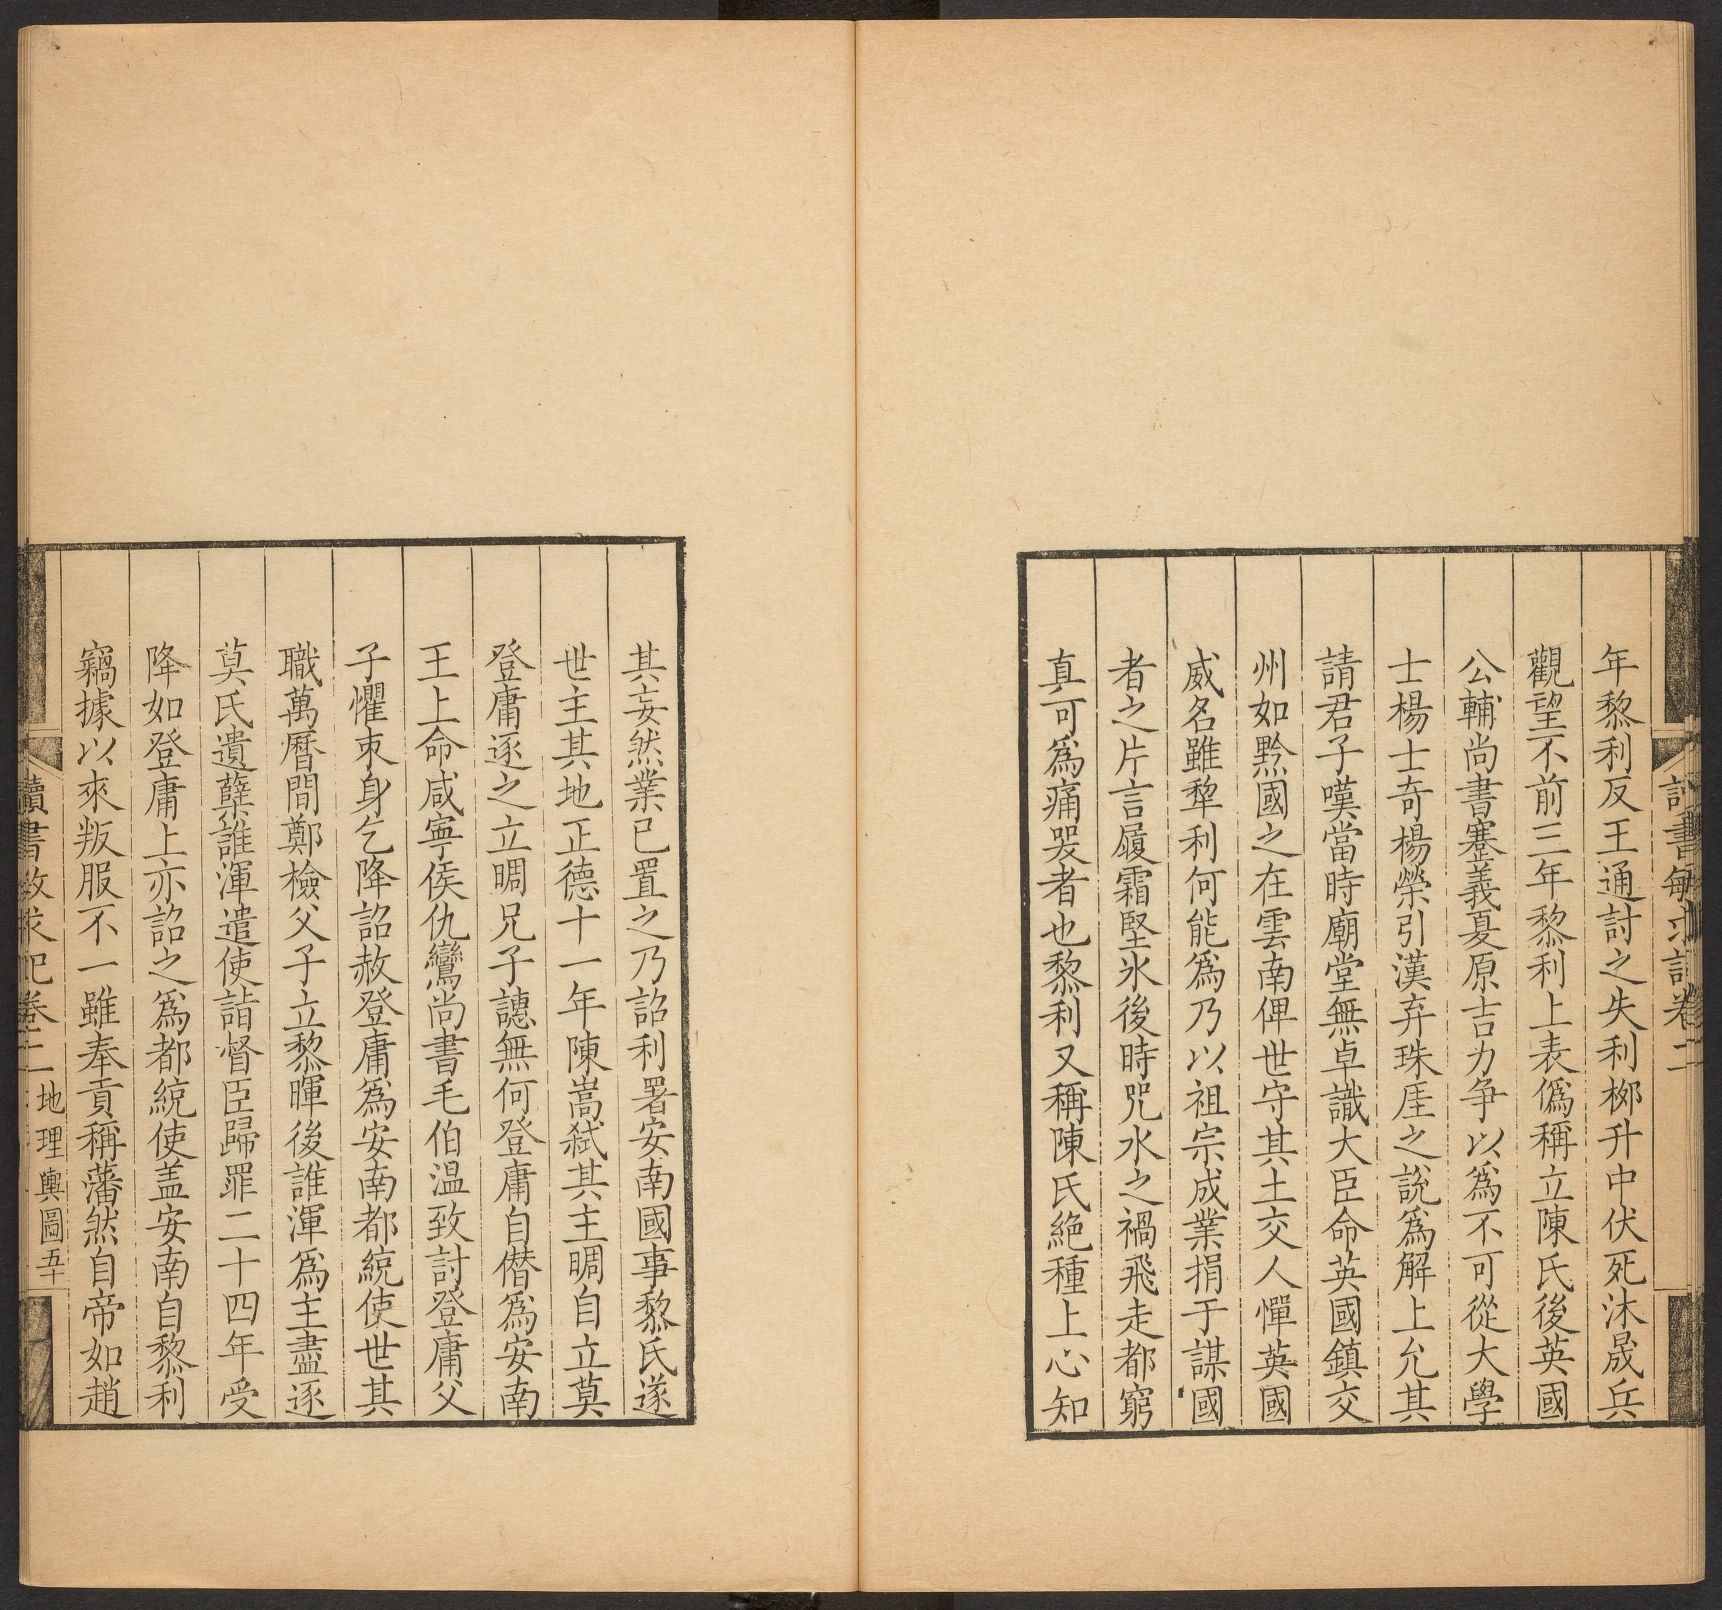 年黎利反王通討之失利桞升中伏死沐晟兵
觀望不前三年黎利上表僞稱立陳氏後英國
公輔尚書蹇義夏原吉力争以爲不可從大學
士楊士奇楊榮引漢弃珠厓之說爲解上允其
請君子嘆當時廟堂無卓識大臣命英國鎮交
州如黔國之在雲南俾世守其土交人憚英國
威名雖犂利何能爲乃以祖宗成業捐于謀國
者之片言履霜堅氷後時咒水之禍飛走都窮
真可爲痛哭者也黎利又稱陳氏絶種上心知
其妄然業已置之乃詔利署安南國事黎氏遂
世主其地正德十一年陳嵩弑其主晭自立莫
登庸逐之立晭兄子譓無何登庸自僣爲安南
王上命咸寧侯仇鸞尚書毛伯温致討登庸父
子懼朿身乞降詔赦登庸爲安南都統使世其
職萬曆間鄭檢父子立黎暉後誰渾爲主盡逐
莫氏遺孽誰渾遣使詣督臣歸罪二十四年受
降如登庸上亦詔之爲都統使盖安南自黎利
竊據以來叛服不一雖奉貢稱藩然自帝如趙
讀書敏求記卷二 地理輿圖 五十